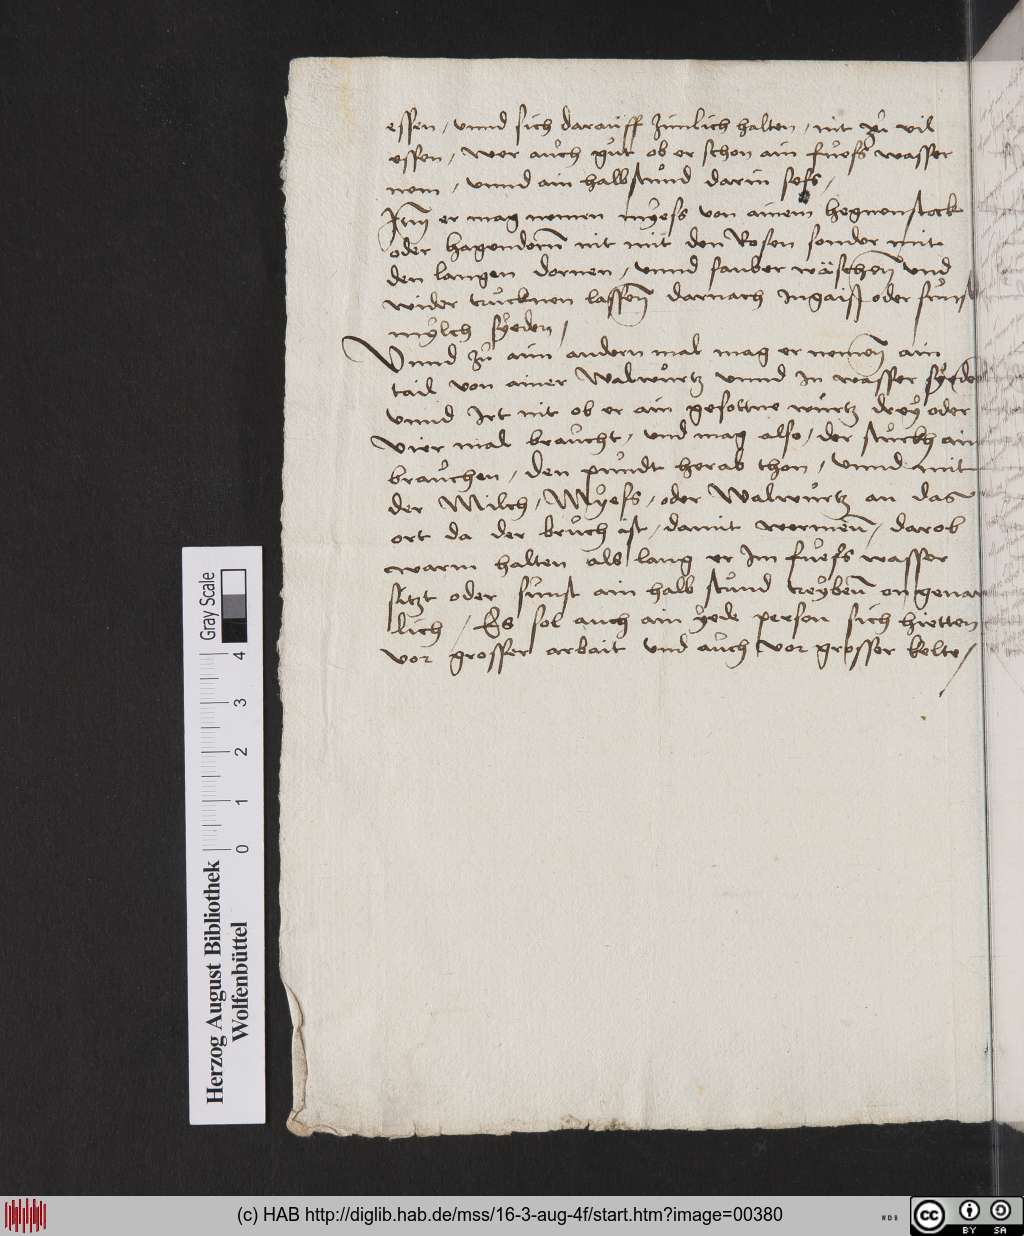 essen / vnnd sich darauff zimlich halten / nit zů vil
essen / wer aůch gůt ob er schon ain fůesß wasser
nem / vnnd ain halb stůnd darin seß /
Jtm̅ er mag nemen myess von ainem hegnenstock
oder hagendorn̅ nit mit den Rosen sonder mit
den langen dornen / vnnd sauber wäschen̅ vnd
wider trucknen lassen̅ darnach Jngaiß oder sunst
mylch syeden /
Vnnd zů ain andern mal mag er nemen̅ ain
tail von ainer Walwůrtz vnnd in wasser syede
vnnd Irt nit ob er ain gesottne wurtz drey oder
vier mal braucht / vnd mag also / der stuckh ain
brauchen / den pundt herab thon / vnnd mit
der Milch / Myess / oder Walwurtz an das
ort da der bruch ist / damit wermen̅ / darob
warm halten als lang er Im fuess wasser
sitzt oder sunst ain halb stund treyben̅ on genar
lich / Es sol auch ain yede person sich hietten
vor grosser arbait vnd auch vor grosser kelte /
Herzog August Bibliothek
Wolfenbüttel
Gray Scale
0 1 2 3 4
(c) HAB http://diglib.hab.de/mss/16-3-aug-4f/start.htm?image=00380
WDB
cc BY SA